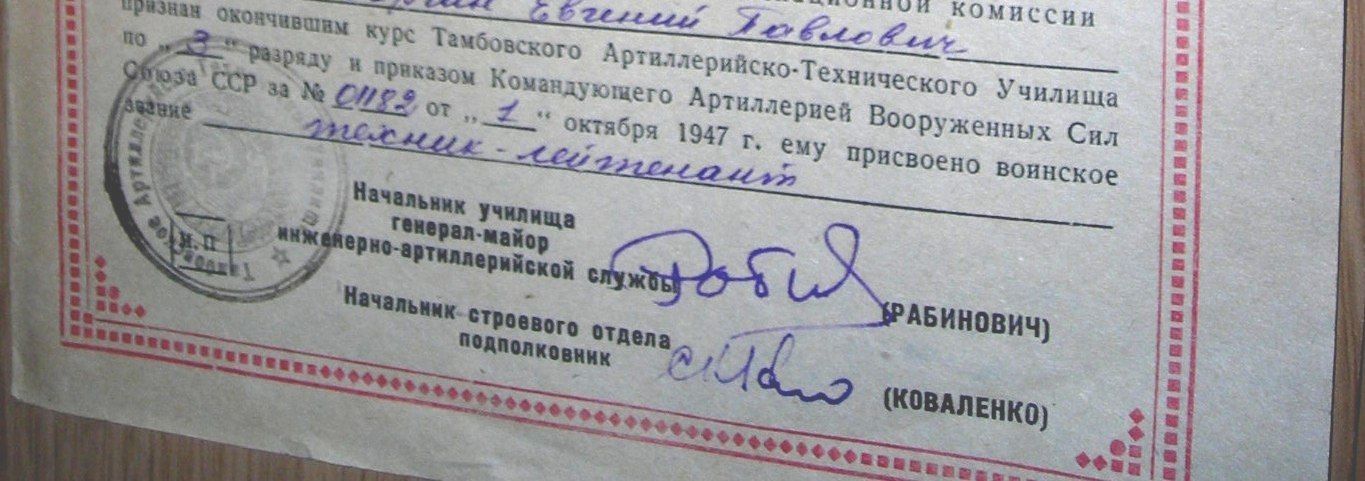 комиссии
Евгений Павлович
признан окончившим курс Тамбовского Артиллерийско-Технического Училища
по „ 3 “ разряду и приказом Командующего Артиллерией Вооруженных Сил
Союза ССР за № 01182 от „ 1 “ октября 1947 г. ему присвоено воинское
звание техник-лейтенант
Начальник училища
генерал-майор
инженерно-артиллерийской службы
(РАБИНОВИЧ)
М. П
Начальник строевого отдела
подполковник
(КОВАЛЕНКО)